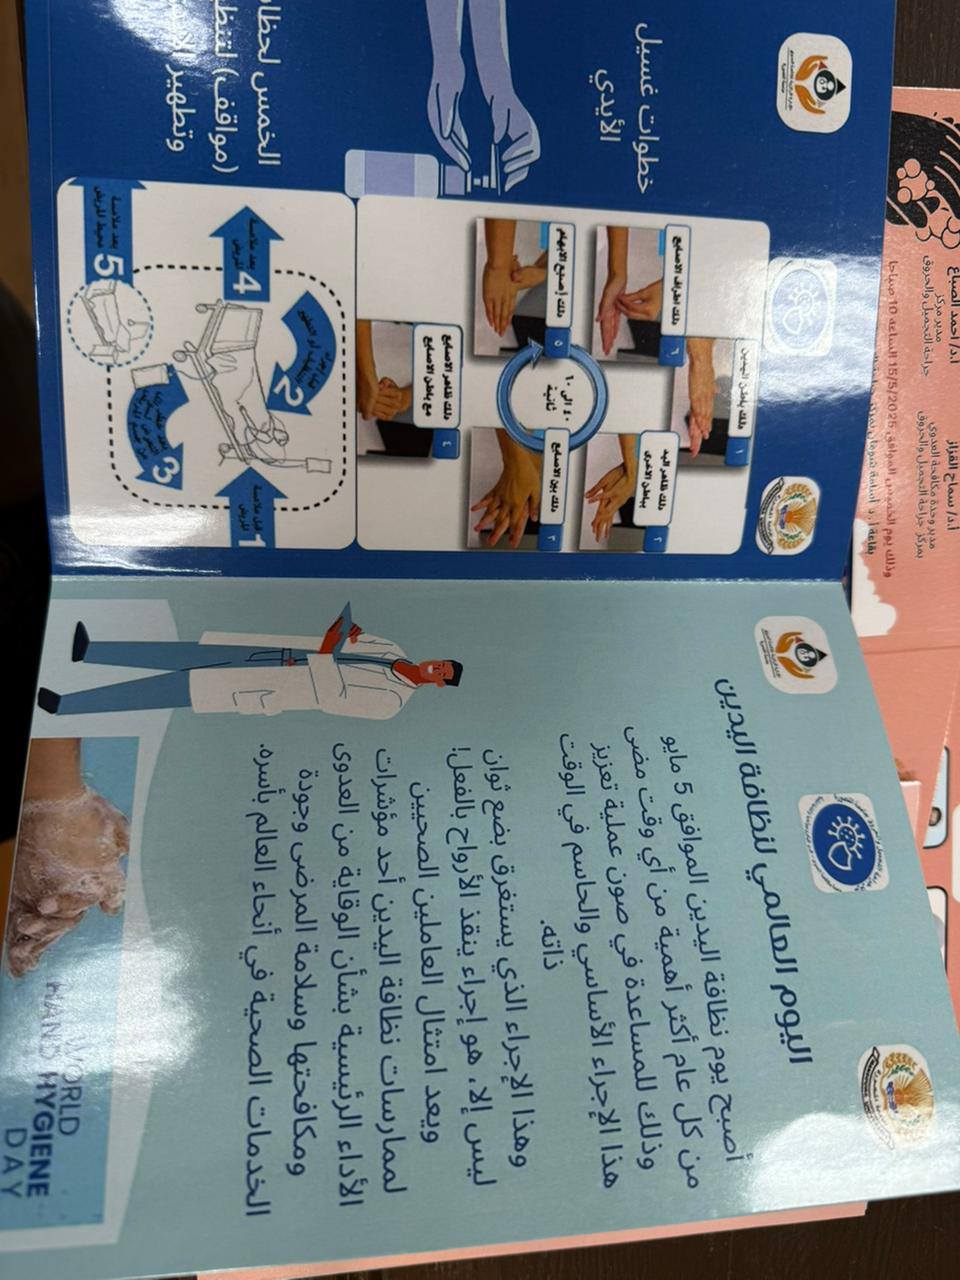 خطوات غسيل
الأيدي
١
دلك باطن اليدين
٢
دلك ظاهر اليد
بباطن الاخرى
٣
دلك بين الاصابع
٤
دلك ظاهر الاصابع
مع باطن الاصابع
٥
دلك اصبع الابهام
٦
دلك اطراف الاصابع
٤٠ الى ٦٠
ثانية
الخمس
(مواقف)
وتطهير
1
قبل ملامسة
المريض
2
3
4
بعد ملامسة
المريض
5
بعد ملامسة
محيط المريض
اليوم العالمي لنظافة اليدين
أصبح يوم نظافة اليدين الموافق 5 مايو
من كل عام أكثر أهمية من أي وقت مضى
وذلك للمساعدة في صون عملية تعزيز
هذا الإجراء الأساسي والحاسم في الوقت
ذاته.
وهذا الإجراء الذي يستغرق بضع ثوان
ليس إلا، هو إجراء ينقذ الأرواح بالفعل!
ويعد امتثال العاملين الصحيين
لممارسات نظافة اليدين أحد مؤشرات
الأداء الرئيسية بشأن الوقاية من العدوى
ومكافحتها وسلامة المرضى وجودة
الخدمات الصحية في أنحاء العالم بأسره.
WORLD
HAND HYGIENE
DAY
أ.د/ أحمد الصباغ
مدير مركز
جراحة التجميل والحروق
أ.د/ سماح القزاز
مدير وحدة مكافحة العدوى
بمركز جراحة التجميل والحروق
وذلك يوم الخميس الموافق 15/5/2025 الساعة 10 صباحا